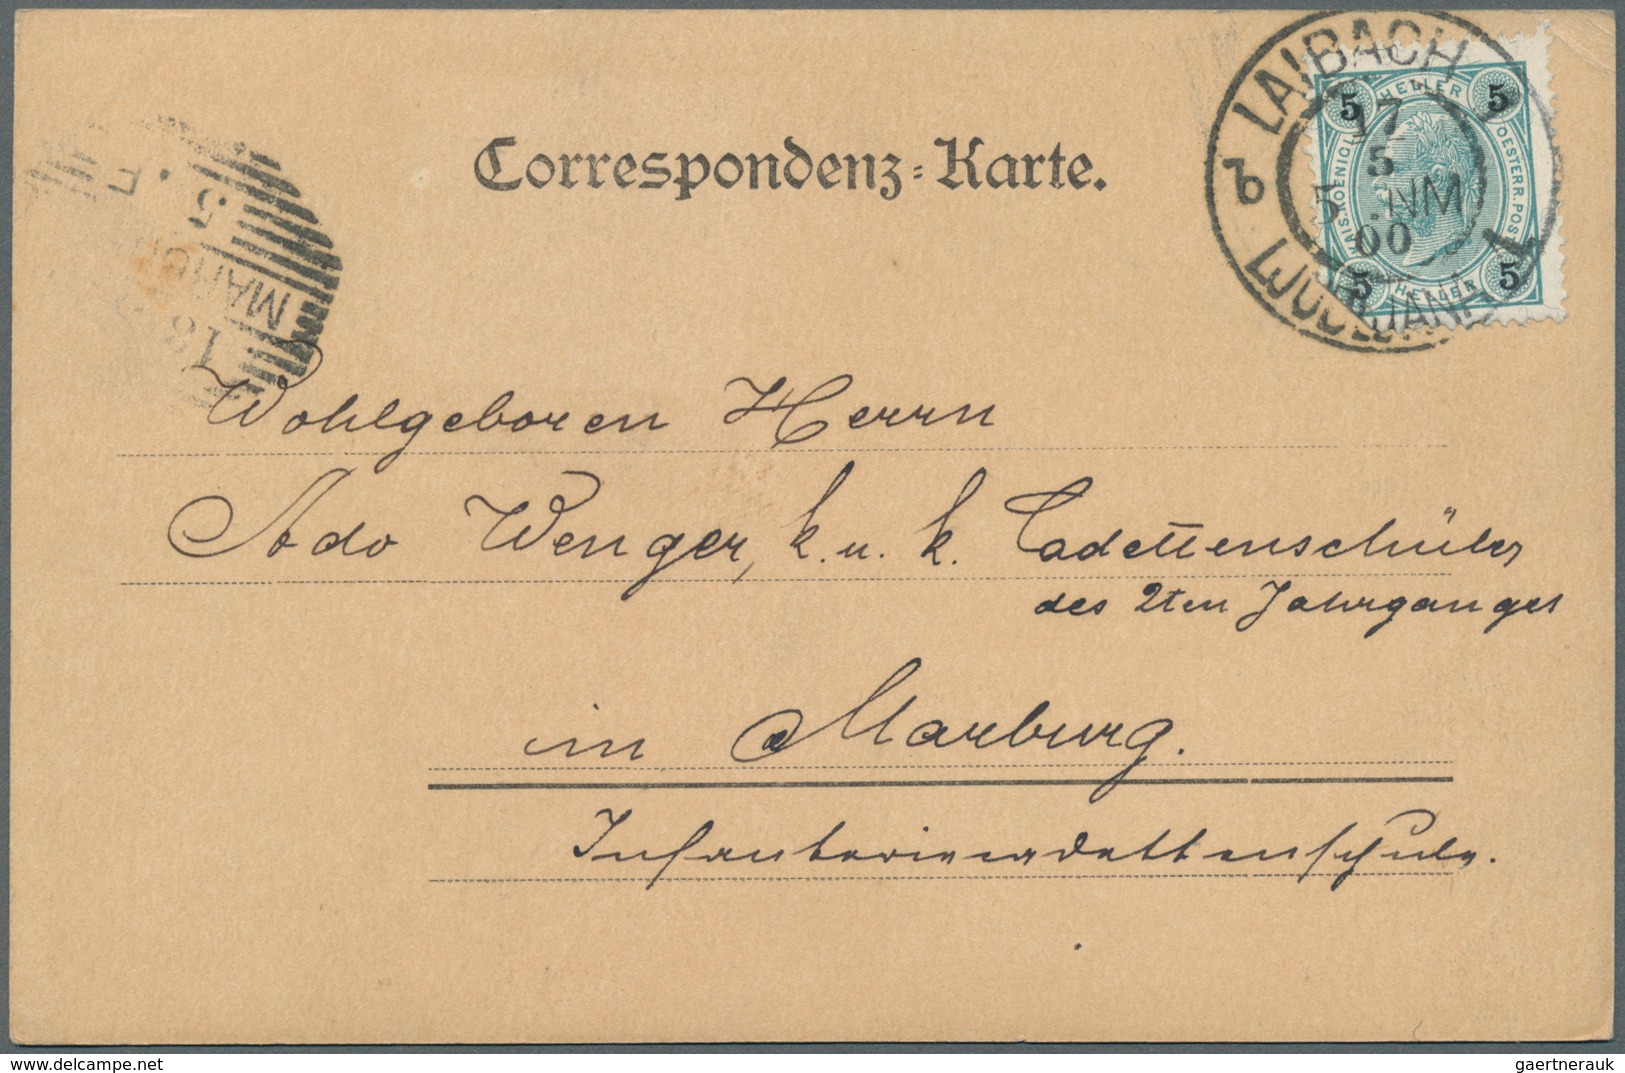 LAIBACH 1
17
5
5 .NM
00
b
LJUBLJANA 1
5 HELLER 5
KAIS. KOENIGL.
OESTERR. POST
5 HELLER 5
Correspondenz-Karte.
18
5
Wohlgeboren Herrn
Ado Wenger, k. u. k. Cadettenschüler
des 2ten Jahrganges
in Marburg.
Infanteriecadettenschule.
www.delcampe.net
gaertnerauk